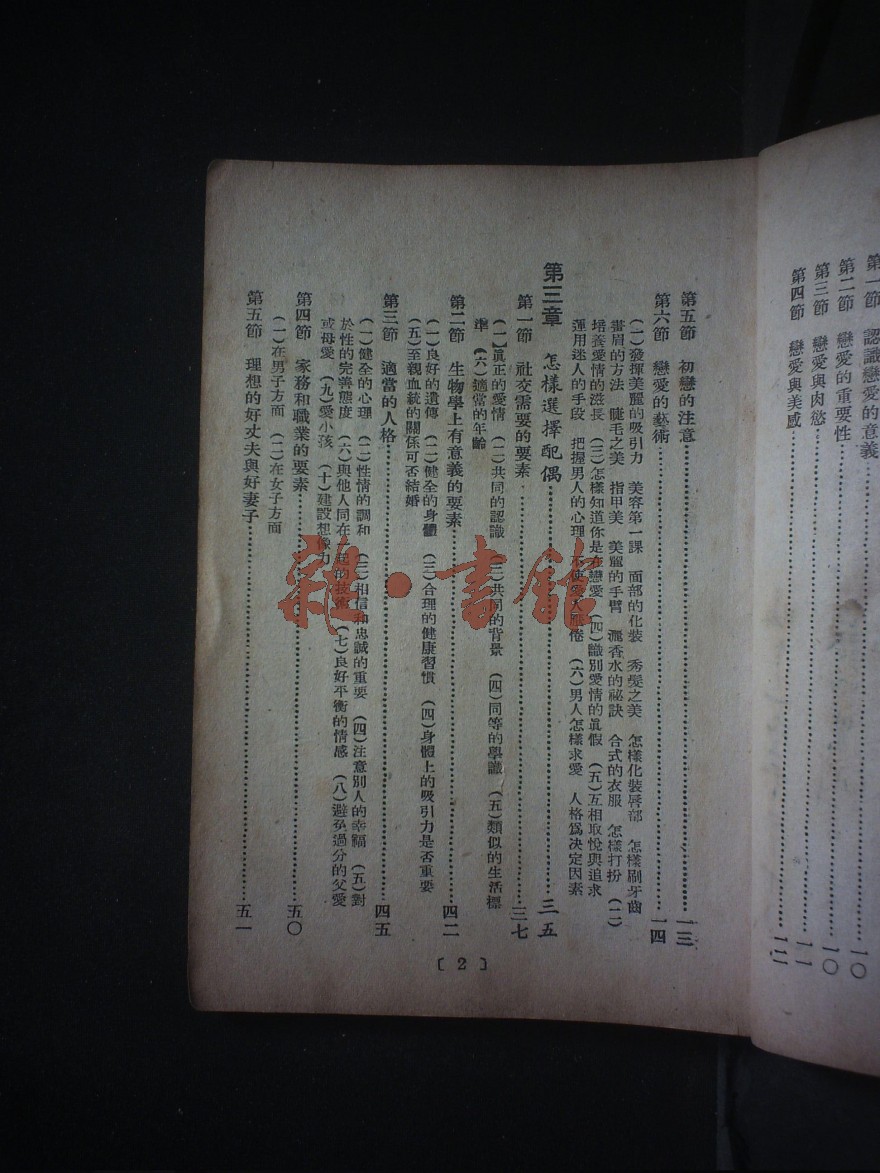 第一節 認識戀愛的意義……一〇
第二節 戀愛的重要性……一〇
第三節 戀愛與肉慾……一一
第四節 戀愛與美感……一二
第五節 初戀的注意……一三
第六節 戀愛的藝術……一四
(一)發揮美麗的吸引力 美容第一課 面部的化裝 秀髮之美 怎樣化裝唇部 怎樣刷牙齒
畫眉的方法 睫毛之美 指甲美 美麗的手臂 灑香水的祕訣 合式的衣服 怎樣打扮 (二)
培養愛情的滋長 (三)怎樣知道你是在戀愛 (四)識別愛情的眞假 (五)互相取悅與追求
運用迷人的手段 把握男人的心理 不使愛人厭倦 (六)男人怎樣求愛 人格爲決定因素
第三章 怎樣選擇配偶……三五
第一節 社交需要的要素……三七
(一)眞正的愛情 (二)共同的認識 (三)共同的背景 (四)同等的學識 (五)類似的生活標
準 (六)適當的年齡
第二節 生物學上有意義的要素……四二
(一)良好的遺傳 (二)健全的身體 (三)合理的健康習慣 (四)身體上的吸引力是否重要
(五)至親血統的關係可否結婚
第三節 適當的人格……四五
(一)健全的心理 (二)性情的調和 (三)相信和忠誠的重要 (四)注意別人的幸福 (五)對
於性的完善態度 (六)與他人同在一起的技術 (七)良好平衡的情感 (八)避免過分的父愛
或母愛 (九)愛小孩 (十)建設想像力
第四節 家務和職業的要素……五〇
(一)在男子方面 (二)在女子方面
第五節 理想的好丈夫與好妻子……五一
〔2〕
雜·書館